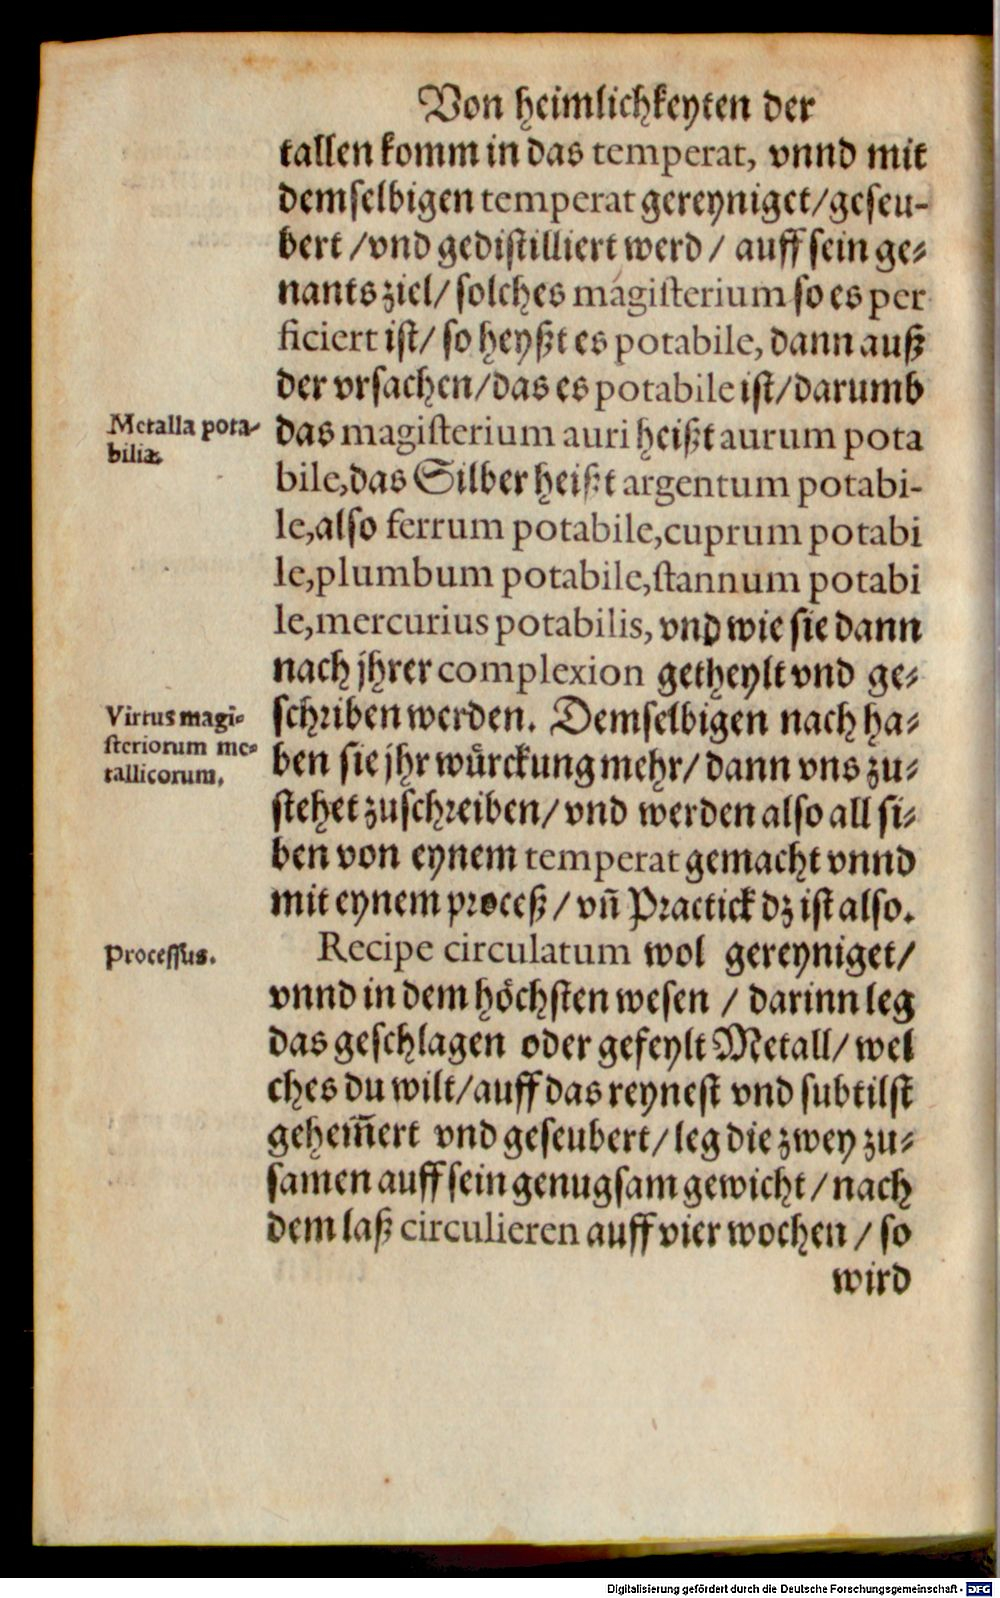 Von heimlichkeyten der
tallen komm in das temperat, vnnd mit
demselbigen temperat gereyniget/geseu-
bert/vnd gedistilliert werd/ auff sein ge-
nants ziel/ solches magisterium so es per
ficiert ist/ so heyßt es potabile, dann auß
der vrsachen/das es potabile ist/darumb
Metalla pota-
biliæ
das magisterium auri heißt aurum pota
bile, das Silber heißt argentum potabi-
le, also ferrum potabile, cuprum potabi
le, plumbum potabile, stannum potabi
le, mercurius potabilis, vnd wie sie dann
nach jhrer complexion getheylt vnd ge-
Virtus magi-
steriorum me-
tallicorum.
schriben werden. Demselbigen nach ha-
ben sie jhr wuͤrckung mehr/ dann vns zu-
stehet zuschreiben/ vnd werden also all si-
ben von eynem temperat gemacht vnnd
mit eynem proceß/ vñ Practick dz ist also.
Processus.
Recipe circulatum wol gereyniget/
vnnd in dem hoͤchsten wesen / darinn leg
das geschlagen oder gefeylt Metall/ wel
ches du wilt/auff das reynest vnd subtilst
gehem̄ert vnd geseubert/ leg die zwey zu-
samen auff sein genugsam gewicht/ nach
dem laß circulieren auff vier wochen / so
wird
Digitalisierung gefördert durch die Deutsche Forschungsgemeinschaft - DFG